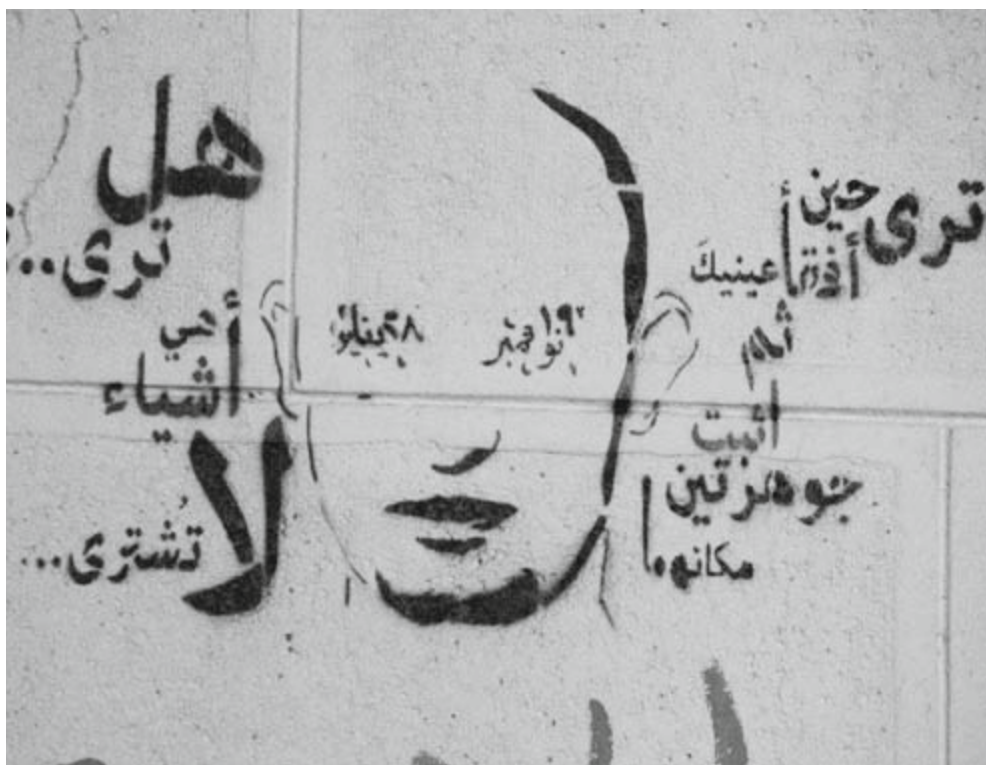 ترى حين
أفقأ عينيكَ
ثم
أثبت
جوهرتين
مكانهما
١٩ نوفمبر
٢٨ يناير
هل
ترى..؟
هي
أشياء
لا
تُشترى...